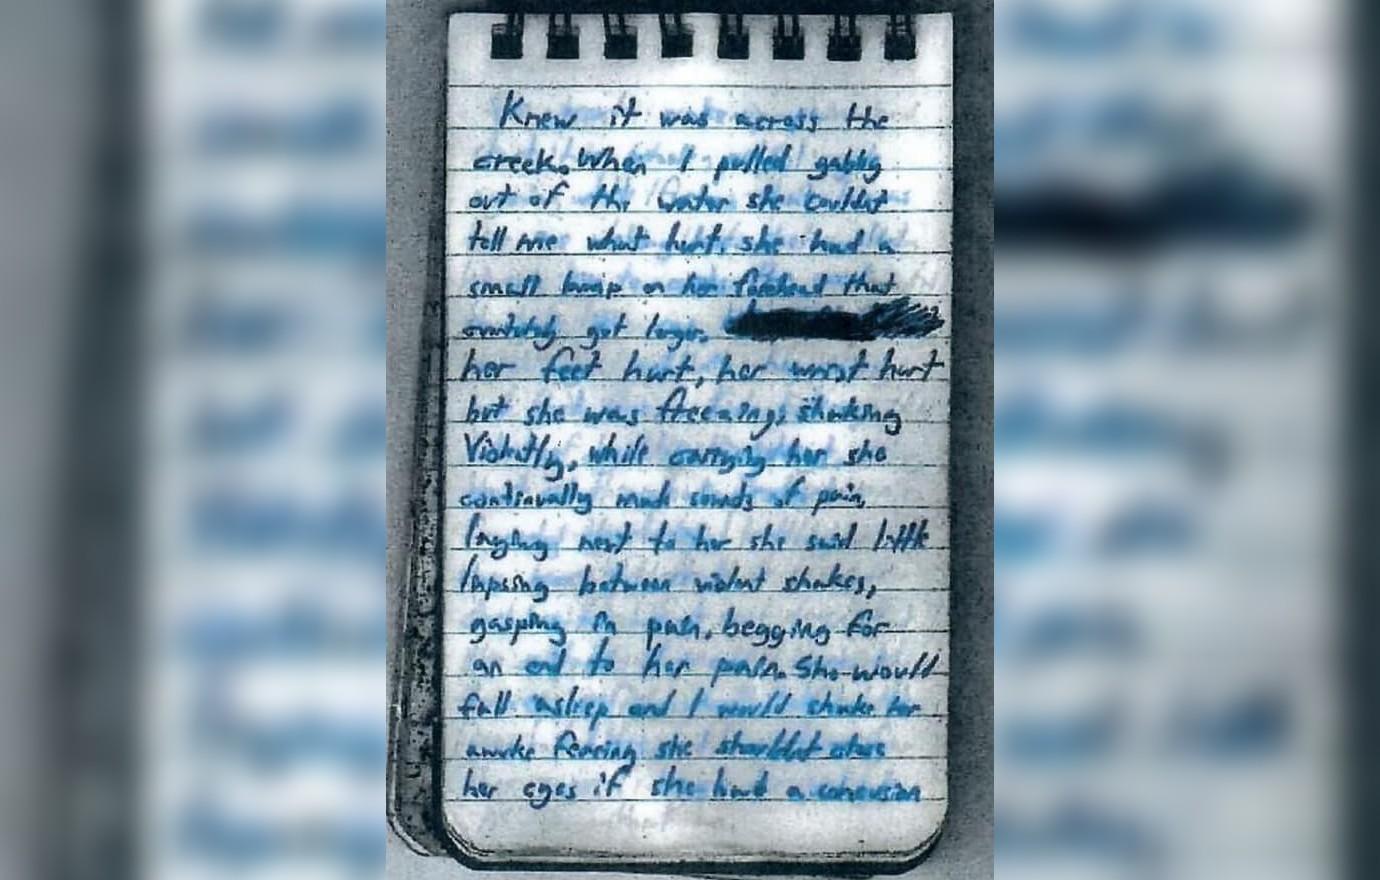 Knew it was across the
creek. When I pulled gabby
out of the water she couldnt
tell me what hurt. she had a
small bump on her forehead that
got larger.
her feet hurt, her wrist hurt
but she was freezing, shaking
Violently, while carrying her she
continually made sounds of pain,
laying next to her she said little
lapsing between violent shakes,
gasping in pain, begging for
an end to her pain. She would
fall asleep and I would shake her
awake fearing she shouldnt close
her eyes if she had a